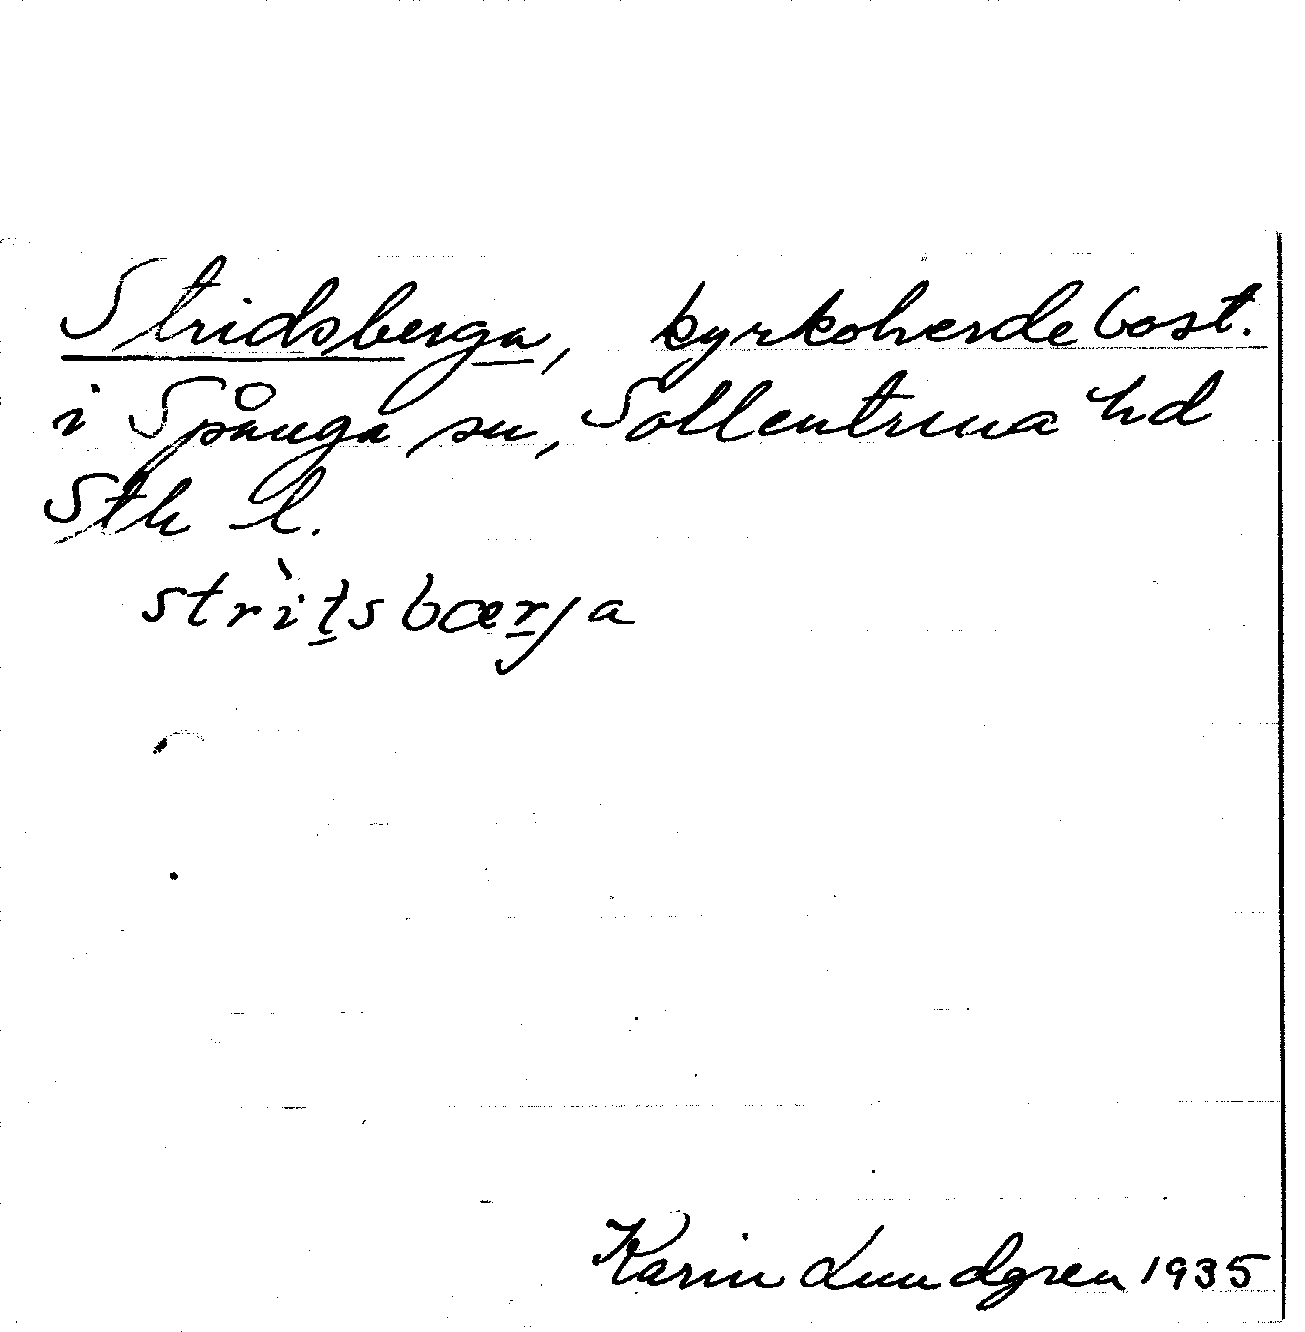 Stridsberga, kyrkoherdebost.
i Spånga sn, Sollentuna hd
Sth l.
strìt̲sbær̲ja
Karin Lundgren 1935